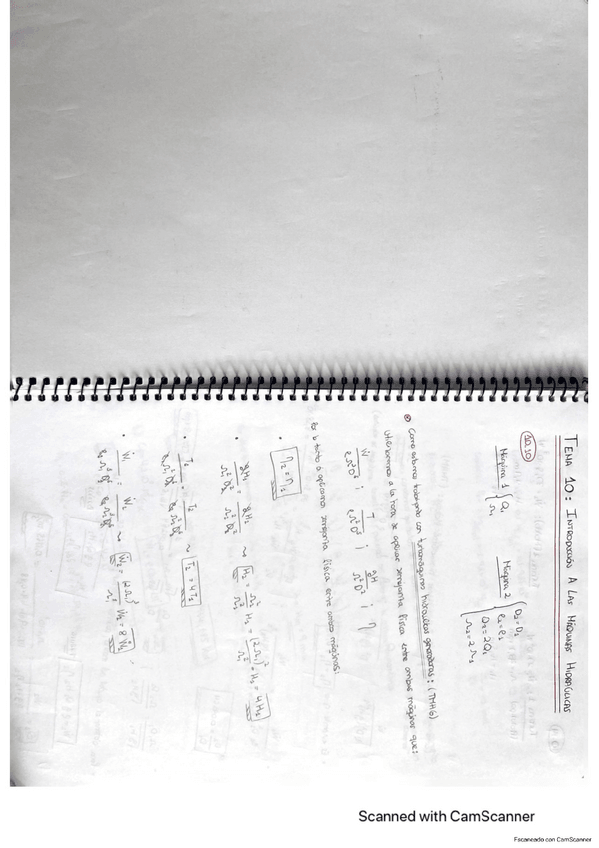 TEMA 10: INTRODUCCIÓN A LAS MÁQUINAS HIDRÁULICAS
10.10
Máquina 1 { Q₁
Ω₁
Máquina 2 { D₂ = D₁
ρ₂ = ρ₁
Q₂ = 2Q₁
Ω₂ = 2Ω₁
Como estamos trabajando con turbomáquinas hidráulicas generadoras: (TMHG)
utilizaremos a la hora de aplicar semejanza física entre ambas máquinas que:
Ẇ/ρΩ³D⁵ ; T/ρΩ²D⁵ ; gH/Ω²D² ; η
Por lo tanto si aplicamos semejanza física entre ambas máquinas:
• η₂ = η₁
• gH₁/Ω₁²D₁² = gH₂/Ω₂²D₂² ~> H₂ = Ω₂²/Ω₁² H₁ = (2Ω₁)²/Ω₁² · H₁ = 4H₁
• T₁/ρ₁Ω₁²D₁⁵ = T₂/ρ₂Ω₂²D₂⁵ ~> T₂ = 4T₁
• Ẇ₁/ρ₁Ω₁³D₁⁵ = Ẇ₂/ρ₂Ω₂³D₂⁵ ~> Ẇ₂ = (2Ω₁)³/Ω₁³ Ẇ₁ = 8Ẇ₁
Scanned with CamScanner
Escaneado con CamScanner